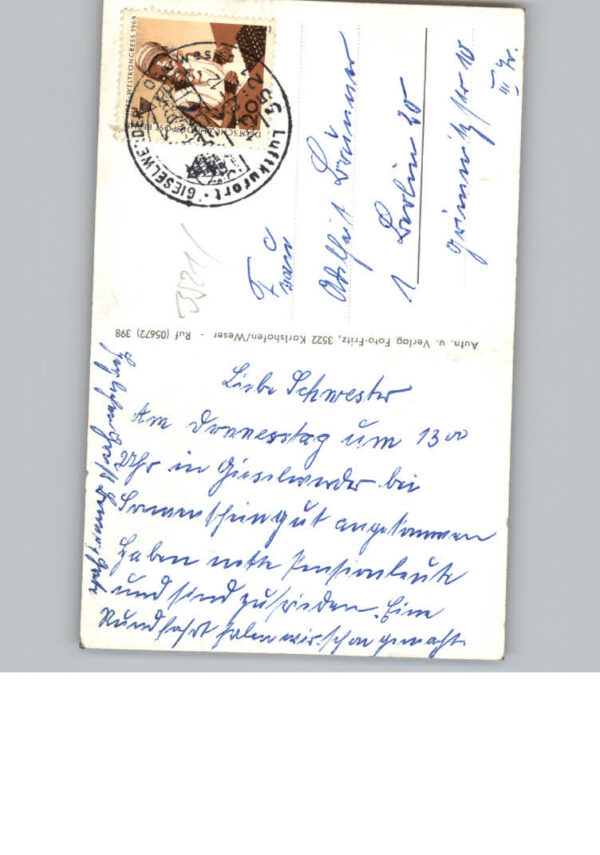 WELTKONGRESS 1969
DEUTSCHE BUNDESPOST BERLIN
20
Luftkurort · GIESELWERDER
3521
Frau
Adelheit Brünner
1 Berlin 20
III Tr.
Aufn. u. Verlag Foto-Fritz, 3522 Karlshafen/Weser - Ruf (05672) 398
Liebe Schwester
Am Donnestag um 13⁰⁰
Uhr in Gieselwerder bei
Sonnenschein gut angekommen
Haben nette Pensionleute
und sind zufrieden. Eine
Rundfahrt haben wir schon gemacht.
Herzlichen Gruß